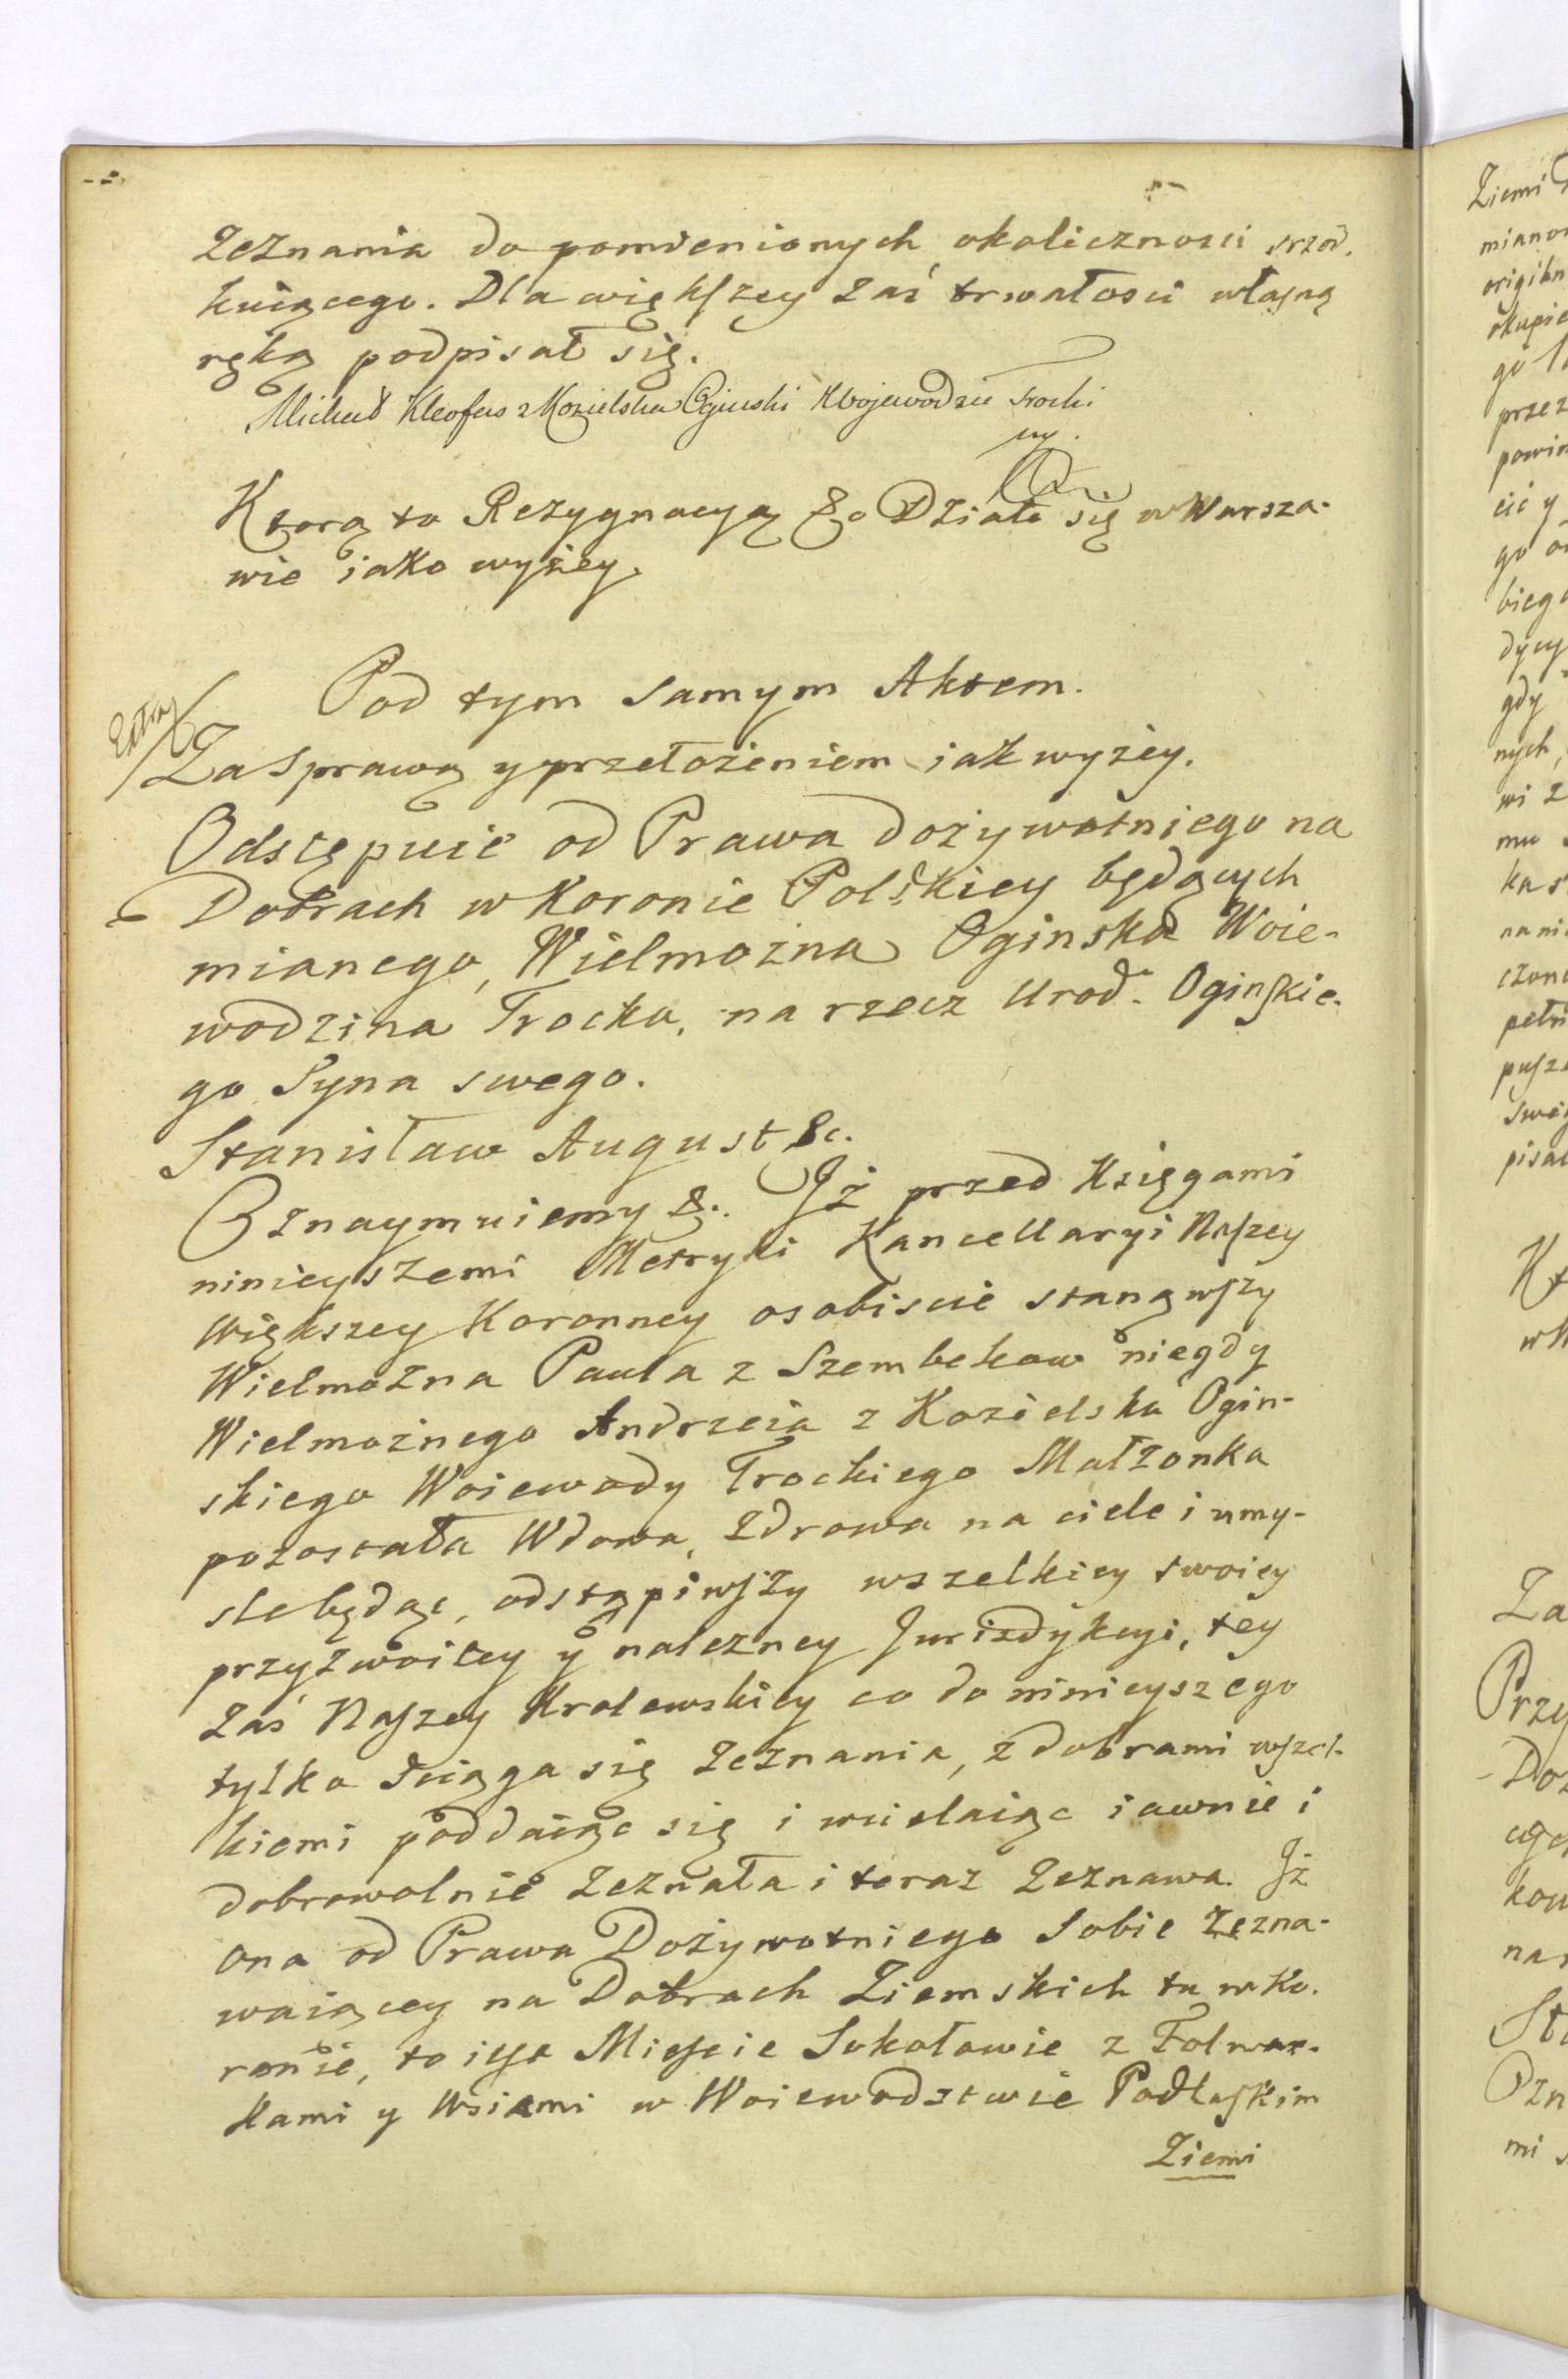 Zeznania do pomienionych okolicznosci srzod.
kuiącego. Dla więkſzey zaś trwałosci właſną
ręką podpisał się.
Michał Kleofas z Kozielska Ogiński Woiewodzic Trocki
mp.
Ktorą to Rezygnacyą &c Działo się w Warsza-
wie iako wyżey.
Extra
Pod tym samym Aktem.
Za sprawą y przełożeniem iak wyżey.
Odstępuie od Prawa dożywotniego na
Dobrach w Koronie Polskiey będących
mianego, Wielmożna Oginska Woie-
wodzina Trocka, na rzecz Urod. Oginſkie-
go Syna swego.
Stanisław August &c.
Oznaymuiemy &. Iż przed Księgami
ninieyszemi Metryki Kancellaryi Naſzey
Większey Koronney osobiscie stanąwſzy
Wielmożna Paula z Szembekow niegdy
Wielmożnego Andrzeia z Kozielska Ogin-
skiego Woiewody Trockiego Małżonka
pozostała Wdowa, Zdrowa na ciele i umy-
sle będąc, odstąpiwſzy wszelkiey swoiey
przyzwoitey y należney Jurisdykcyi, tey
zaś Naſzey Krolewskiey co do ninieyszego
tylko sciąga się Zeznania, z dobrami wſzel-
kiemi poddaiąc się i wcielaiąc iawnie i
dobrowolnie Zeznała i teraz Zeznawa. Iż
ona od Prawa Dożywotniego Sobie Zezna-
waiącey na Dobrach Ziemskich tu w Ko-
ronie, to iest Mieſcie Sokołowie z Folwar-
kami y Wsiami w Woiewodztwie Podlaſkim
Ziemi